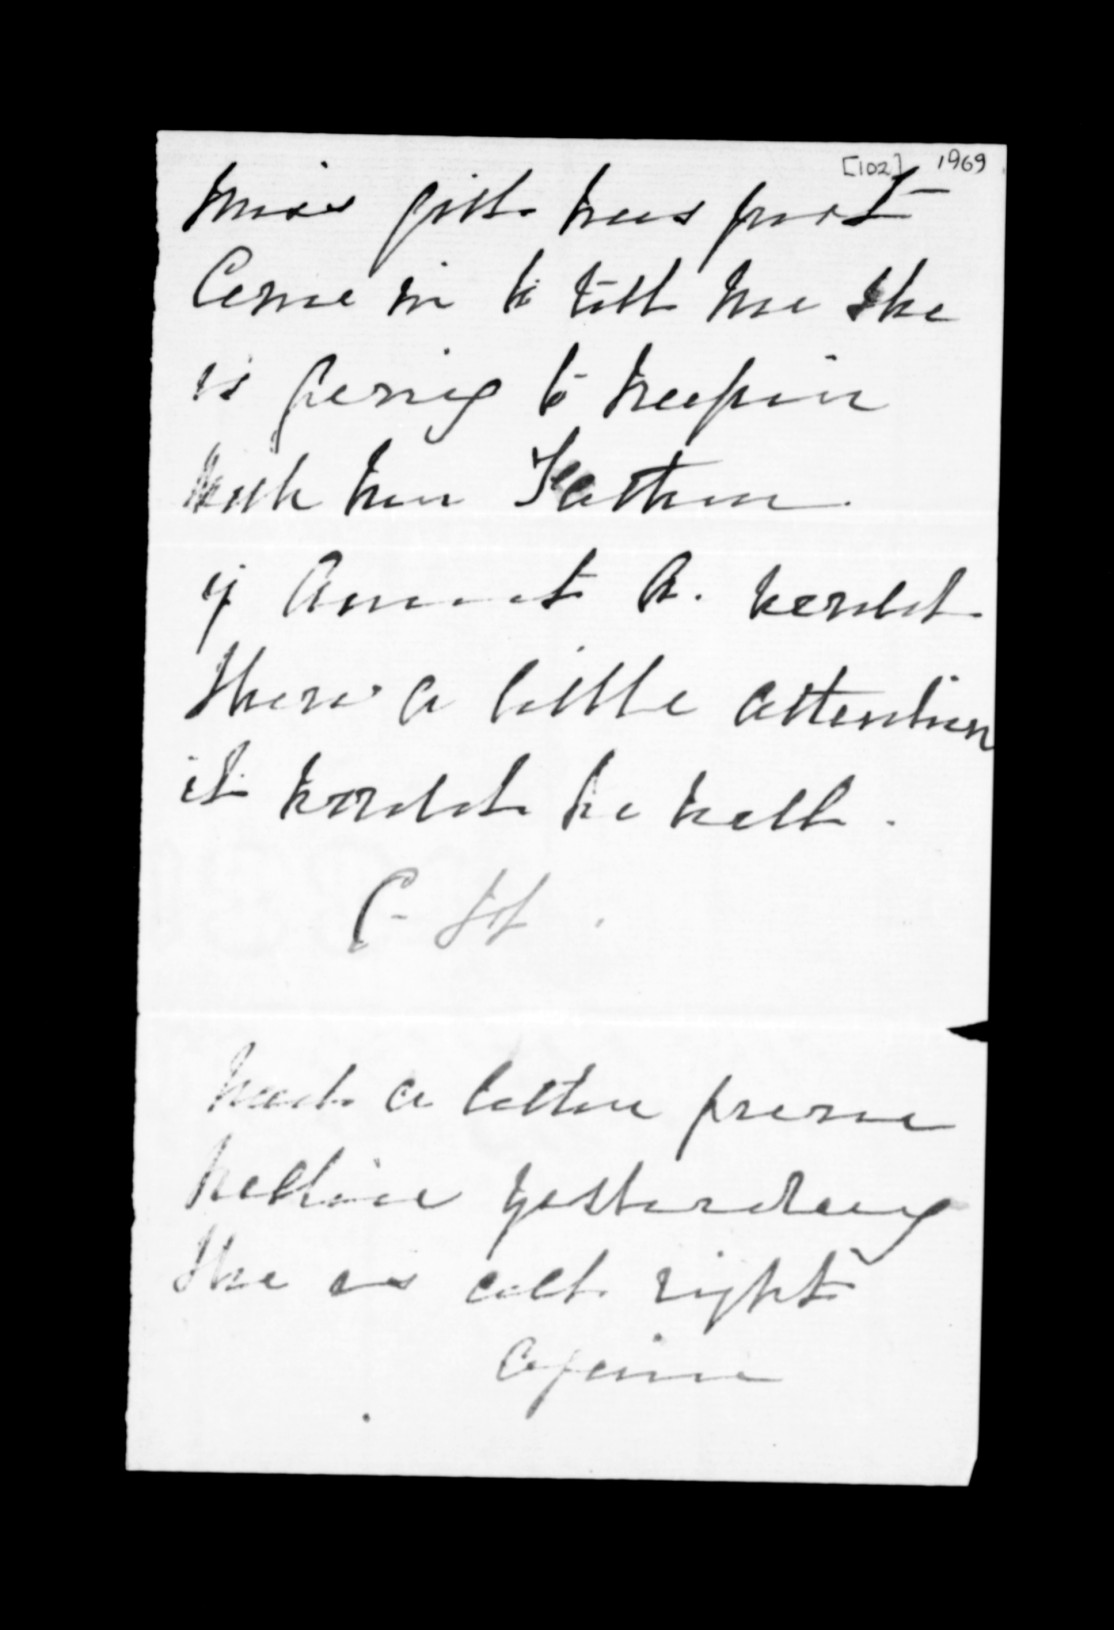 [102] 1969
Miss Gill has just
Come in to tell me she
is going to keep in
with her Father.
if Aunt A. would
Show a little attention
it would be well.
Had a letter from
yesterday
She is all right
again